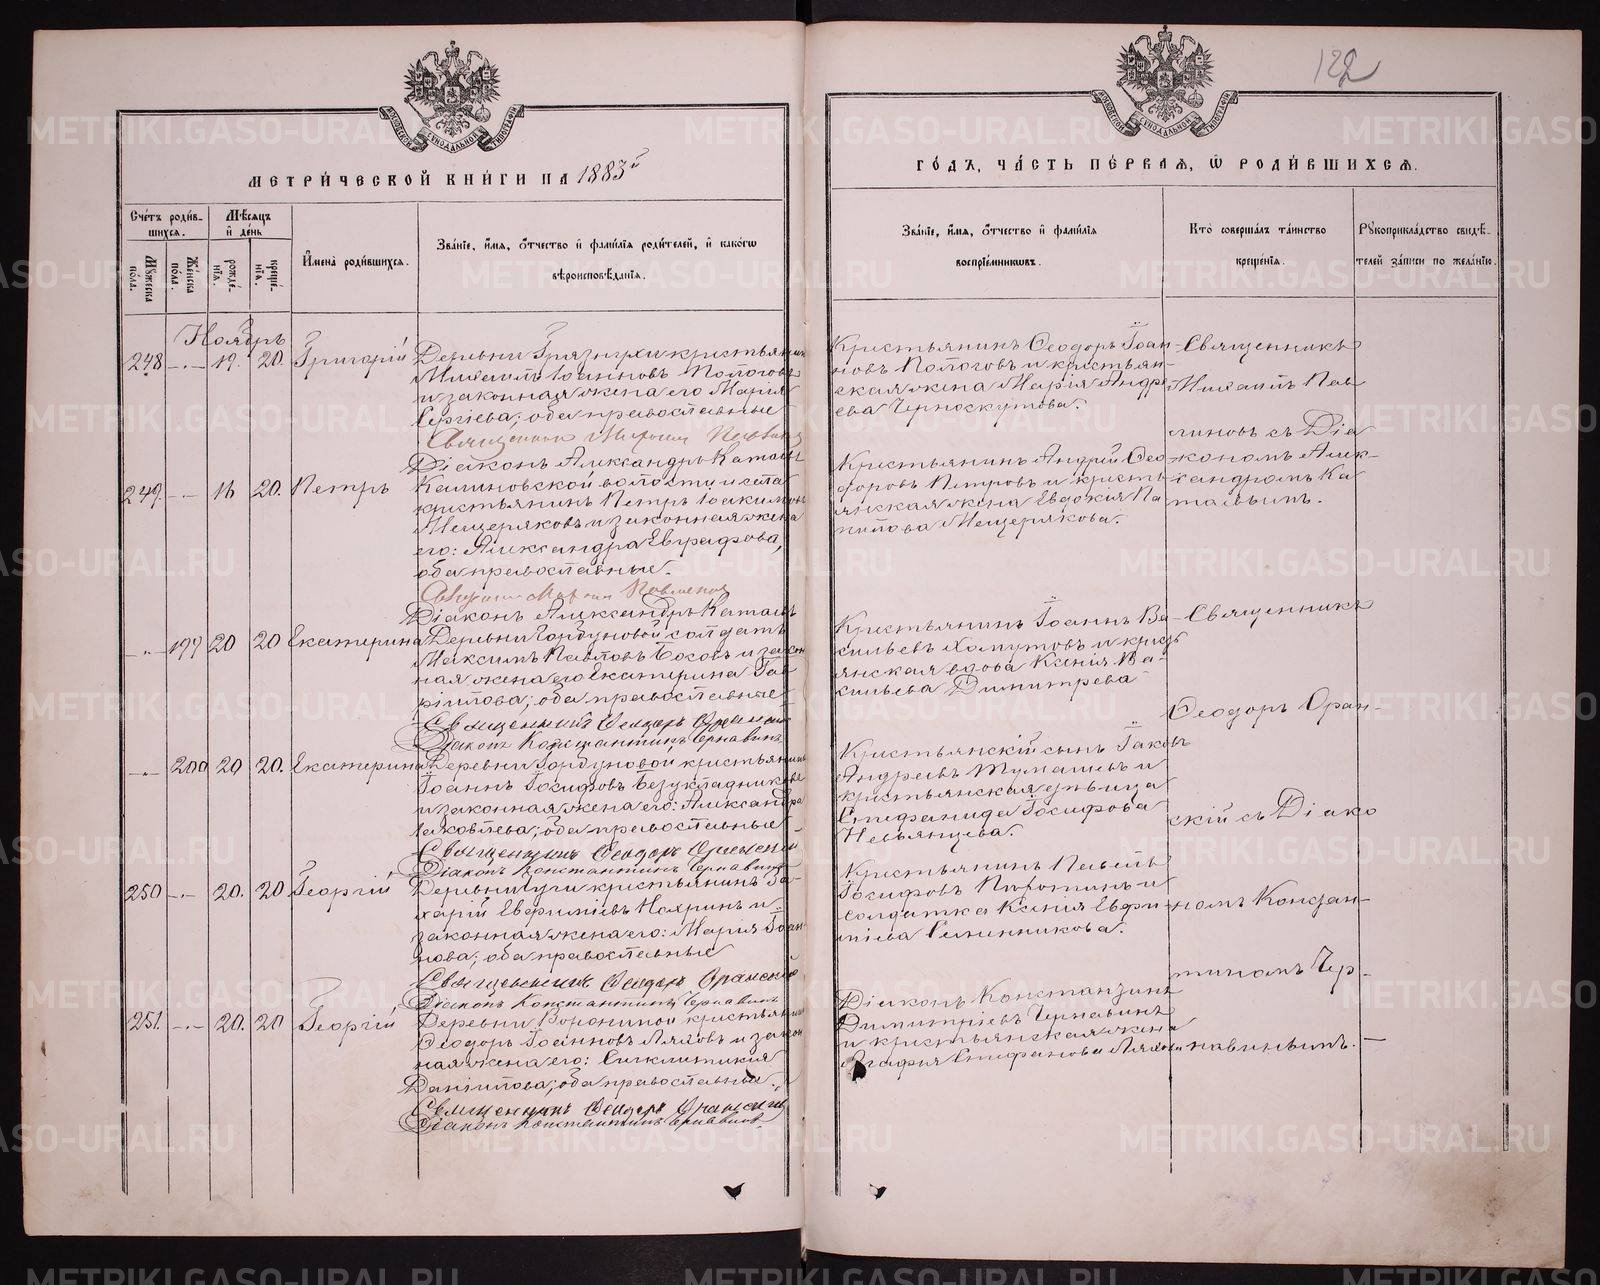 122
МЕТРИ́ЧЕСКОЙ КНИ́ГИ НА 1883й
ГО́ДЪ, ЧА́СТЬ ПЕ́РВАЯ, Ѡ РОДИ́ВШИХСЯ.
Сче́тъ роди́вшихся.
Му́жеска по́ла.
Же́нска по́ла.
Мѣ́сяцъ и де́нь
рожде́нїя.
креще́нїя.
И҆мена̀ роди́вшихся.
Зва́нїе, и҆́мя, ѻ҆́тчество и҆ фами́лїя роди́телей, и҆ како́гѡ
вѣроисповѣ́данїя.
Зва́нїе, и҆́мя, ѻ҆́тчество и҆ фами́лїя
воспрїе́мникѡвъ.
Кто̀ соверша́лъ та́инство
креще́нїя.
Рꙋкоприкла́дство свидѣ́-
телей за́писи по жела́нїю.
Ноябрь
248 -"- 19. 20. Григорій
Деревни Грязнухи крестьянинъ
Михаилъ Іоанновъ Пологовъ
и законная жена его Марія
Сергіева; оба православные
Діаконъ Александръ Катаевъ
Крестьянинъ Ѳеодоръ Іоан-
новъ Пологовъ и крестьян-
ская жена Марія Андре
ева Черноскутова.
Священникъ
Михаилъ Пав
линовъ съ Діа
кономъ Алек-
сандромъ Ка
таевымъ.
249. -"- 16 20. Петръ
Калиновской волости и села
крестьянинъ Петръ Іакимовъ
Мещеряковъ и законная жена
его: Александра Евграфова,
оба православные.
Діаконъ Александръ Катаевъ
Крестьянинъ Андрей Ѳео-
доровъ Петровъ и кресть
янская жена Евдокія Па
пилова Мещерякова.
-"- 199 20 20 Екатерина
Деревни Горбуновой солдатъ
Максимъ Павловъ Босовъ и закон
ная жена его Екатерина Гав
ріилова; оба православные
Священникъ Ѳеодоръ Оранскій
Діаконъ Константинъ Чернавинъ
Крестьянинъ Іоаннъ Ва-
сильевъ Хомутовъ и кресть
янская вдова Ксенія Ва-
сильева Димитрева
Священникъ
Ѳеодоръ Оран-
скій съ Діако
номъ Констан-
тиномъ Чер-
навинымъ.
-"- 200 20 20. Екатерина
Деревни Горбуновой крестьянинъ
Іоаннъ Іосифовъ Безукладниковъ
и законная жена его: Александра
Іаковлева; оба православные
Священникъ Ѳеодоръ Оранскій
Діаконъ Константинъ Чернавинъ
Крестьянскій сынъ Іаковъ
Андреевъ Тумашевъ и
крестьянская дѣвица
Стефанида Іосифова
Невьянцева.
250 -"- 20. 20 Георгій
Деревни Луги крестьянинъ За-
харій Евфиміевъ Нохринъ и
законная жена его: Марія Іоан
нова; оба православные
Священникъ Ѳеодоръ Оранскій
Діаконъ Константинъ Чернавинъ
Крестьянинъ Павелъ
Іосифовъ Пировъ и
солдатка Ксенія Евфи-
міева Синенникова.
251. -"- 20. 20 Георгій
Деревни Ворониной крестьянинъ
Ѳеодоръ Іоанновъ Ляховъ и закон
ная жена его: Синклитикія
Даніилова; оба православные.
Священникъ Ѳеодоръ Оранскій
Діаконъ Константинъ Чернавинъ
Діаконъ Константинъ
Димитріевъ Чернавинъ
и крестьянская жена
Агафія Стефанова Ляхова
METRIKI.GASO-URAL.RU